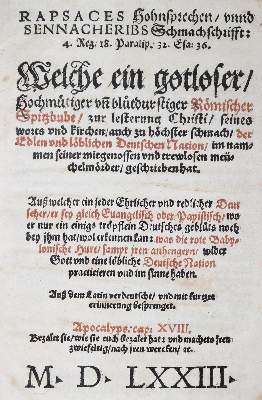 RAPSACES Hohnsprechen/ vnnd
SENNACHERIBS Schmachschrifft:
4. Reg. 18. Paralip. 32. Esa: 36.
Welche ein gotloser/
Hochmütiger vñ blůtdurstiger Römischer
Spitzbube/ zur lesterung Christi/ seines
worts vnd kirchen/ auch zu höchster schmach/ der
Edlen vnd löblichen Deutschen Nation/ im nam
men seiner mitgenossen vnd trewlosen meü-
chelmörder/ geschrieben hat.
Auß welcher ein jeder Ehrlicher vnd redlicher Deut
scher/ er sey gleich Euangelisch oder Papistisch/ wo
er nur ein einigs tröpflein Deutsches geblüts noch
bey jhm hat/ wol erkennen kan: was die rote Baby-
lonische Hure/ sampt jren anhengern/ wider
Gott vnd eine löbliche Deutsche Nation
practicieren vnd im sinne haben.
Auß dem Latin verdeutscht/ vnd mit kurtzer
erinnerung besprenget.
Apocalyps: cap: XVIII.
Bezalet sie/ wie sie euch bezalet hat: vnd machets jren
zwiefeltig/ nach jren wercken/ ec.
M. D. LXXIII.